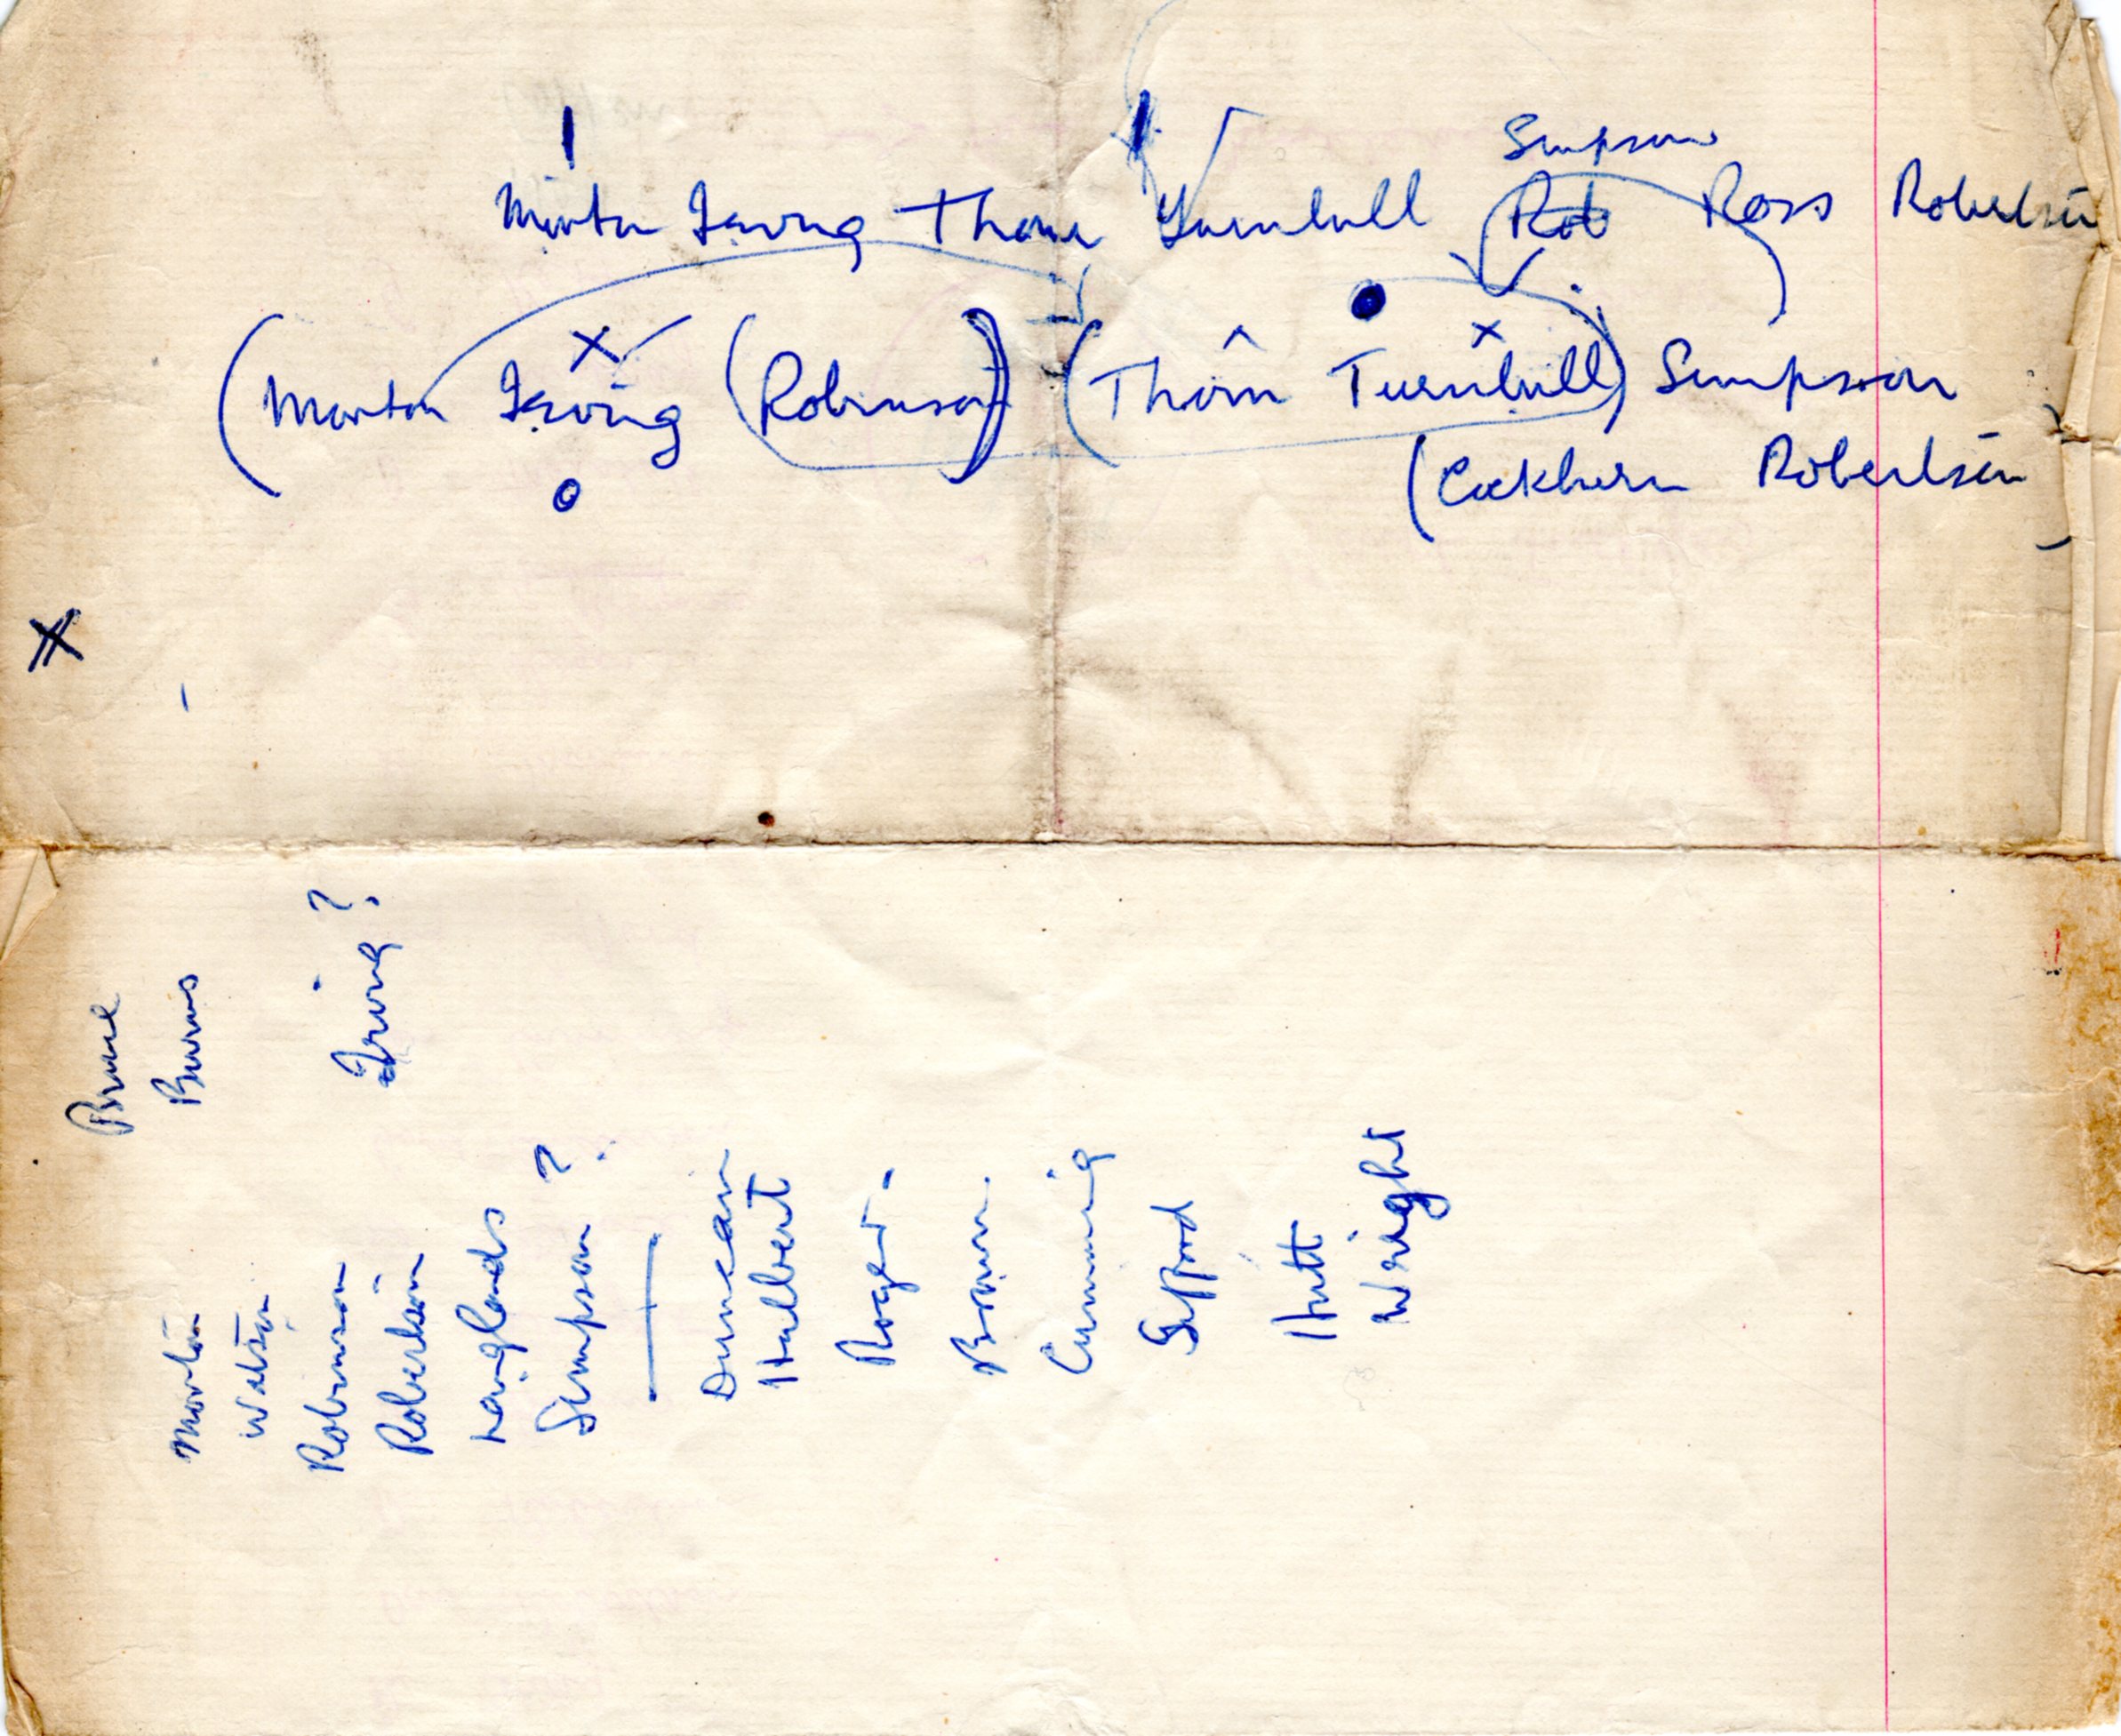 Simpson
Morton Irving Thom Turnbull Rob Ross Robertson
(Morton Irving (Robinson)) (Thom Turnbull) Simpson
(Cockburn Robertson)
Bruce
Burns
Irving ?
Morton
Watson
Robinson
Robertson
Langlands
Simpson ?
Duncan
Halbert
Roger.
Brown.
Cumming
Gifford
Hutt
Wright